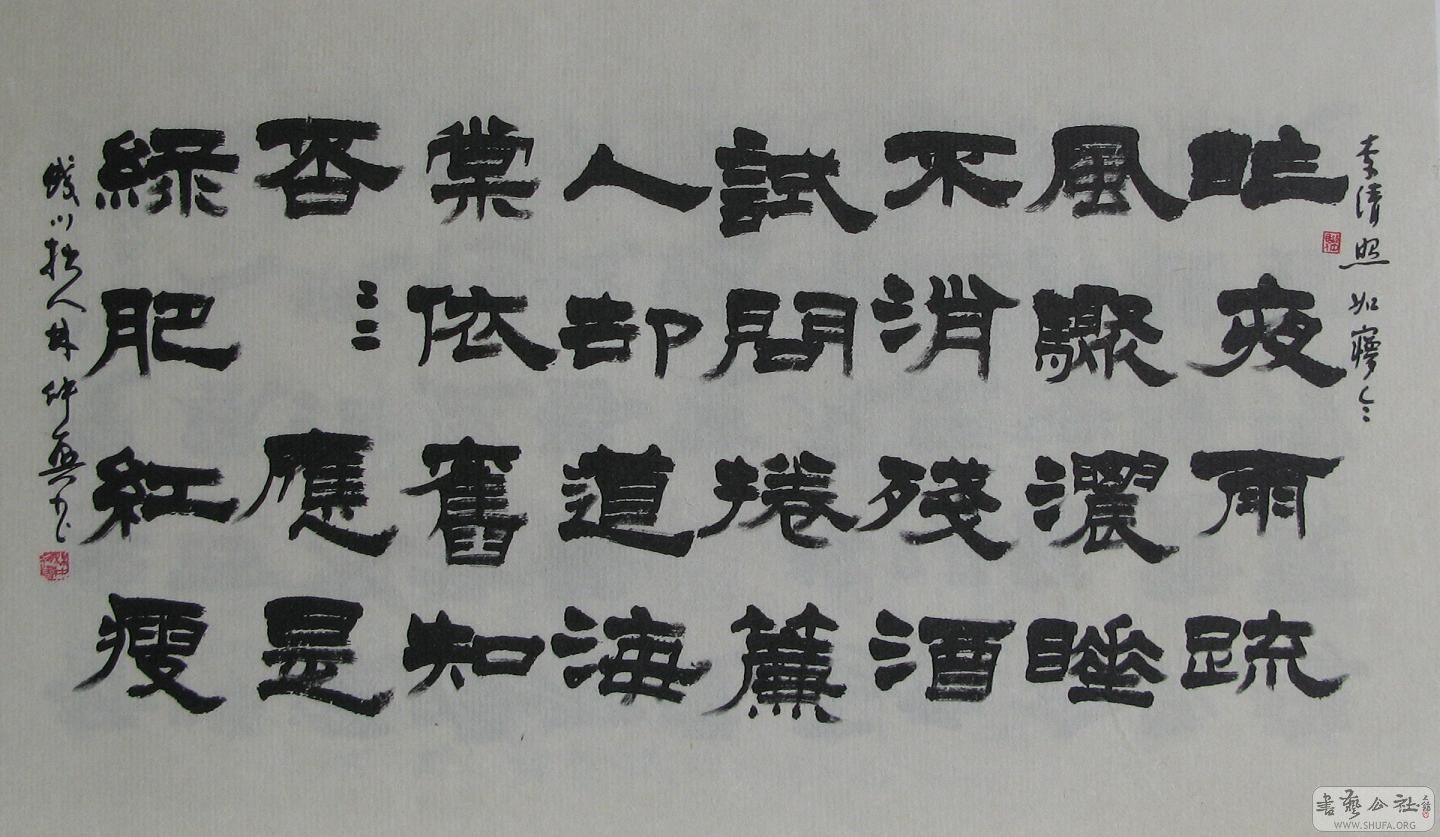 李清照如夢令
昨夜雨疏
風驟濃睡
不消殘酒
試問捲簾
人却道海
棠依舊知
否〻〻應是
綠肥紅瘦
川拙人林仲興书
書藝公社
WWW.SHUFA.ORG